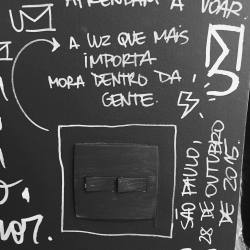 APRENDAM A VOAR
A LUZ QUE MAIS
IMPORTA
MORA DENTRO DA
GENTE.
SÃO PAULO,
28 DE OUTUBRO
DE 2015.